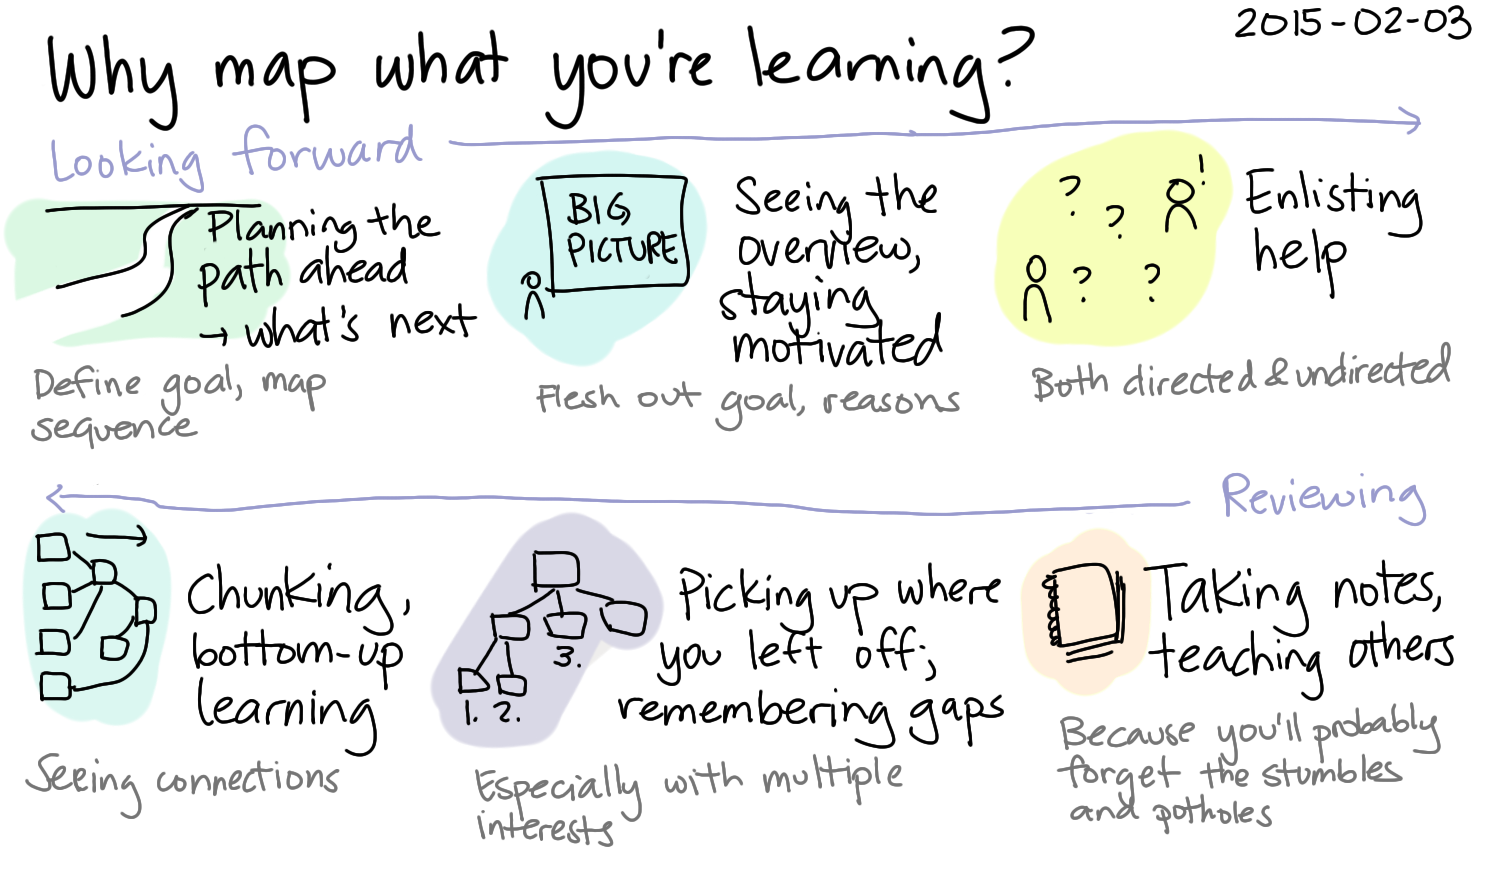 Why map what you're learning?
2015-02-03
Looking forward
Planning the
path ahead
→ what's next
Define goal, map
sequence
BIG
PICTURE
Seeing the
overview,
staying
motivated
Flesh out goal, reasons
? ! ? ? ?
Enlisting
help
Both directed & undirected
Reviewing
Chunking,
bottom-up
learning
Seeing connections
3.
1. 2.
Picking up where
you left off;
remembering gaps
Especially with multiple
interests
Taking notes,
teaching others
Because you'll probably
forget the stumbles
and potholes